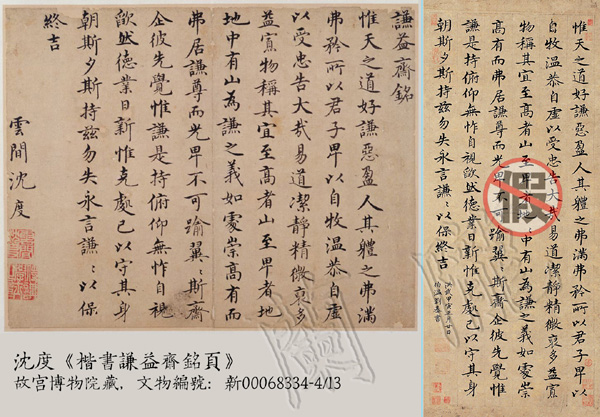 謙益齋銘
惟天之道好謙惡盈人其體之弗滿
弗矜所以君子卑以自牧溫恭自虛
以受忠告大哉易道潔靜精微裒多
益寡物稱其宜至高者山至卑者地
地中有山為謙之義如處崇高有而
弗居謙尊而光卑不可踰翼〻斯齋
企彼先覺惟謙是持俯仰無怍自視
欿然德業日新惟克處己以守其身
朝斯夕斯持茲勿失永言謙〻以保
終吉
雲間沈度
沈度《楷書謙益齋銘頁》
故宮博物院藏，文物編號：新00068334-4/13
惟天之道好謙惡盈人其體之弗滿弗矜所以君子卑以
自牧溫恭自虛以受忠告大哉易道潔靜精微裒多益寡
物稱其宜至高者山至卑者地〻中有山為謙之義如處崇
高有而弗居謙尊而光卑不可踰翼〻斯齋企彼先覺惟
謙是持俯仰無怍自視欿然德業日新惟克處己以守其身
朝斯夕斯持茲勿失永言謙〻以保終吉
洪武甲寅正月廿日
伯溫劉基書
假